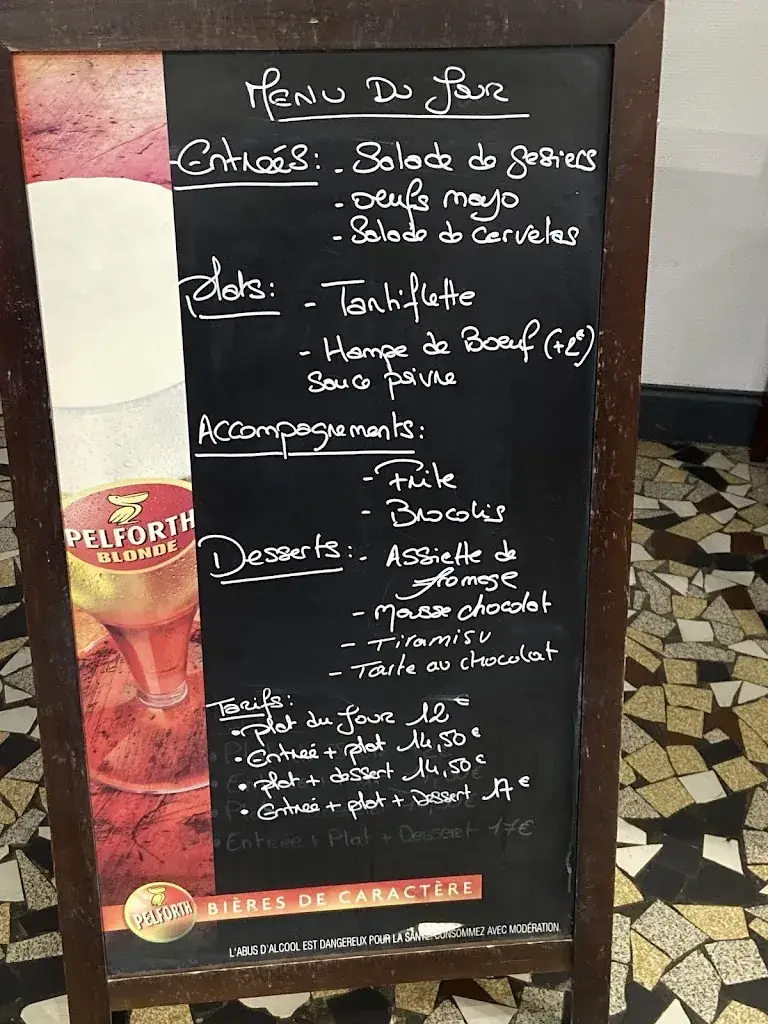 MENU DU JOUR
Entreés: - Salade de gesiers
- oeufs mayo
- Salade de cervelas
plats: - Tartiflette
- Hampe de Boeuf (+2€)
Sauce poivre
Accompagnements:
- Frite
- Brocolis
Desserts: - Assiette de
fromage
- Mousse chocolat
- Tiramisu
- Tarte au chocolat
Tarifs:
• plat du jour 12€
• Entreé + plat 14,50€
• plat + dessert 14,50€
• Entreé + plat + Dessert 17€
• Entreé + Plat + Desseret 17€
PELFORTH
BLONDE
PELFORTH
BIÈRES DE CARACTÈRE
L'ABUS D'ALCOOL EST DANGEREUX POUR LA SANTÉ. CONSOMMEZ AVEC MODÉRATION.